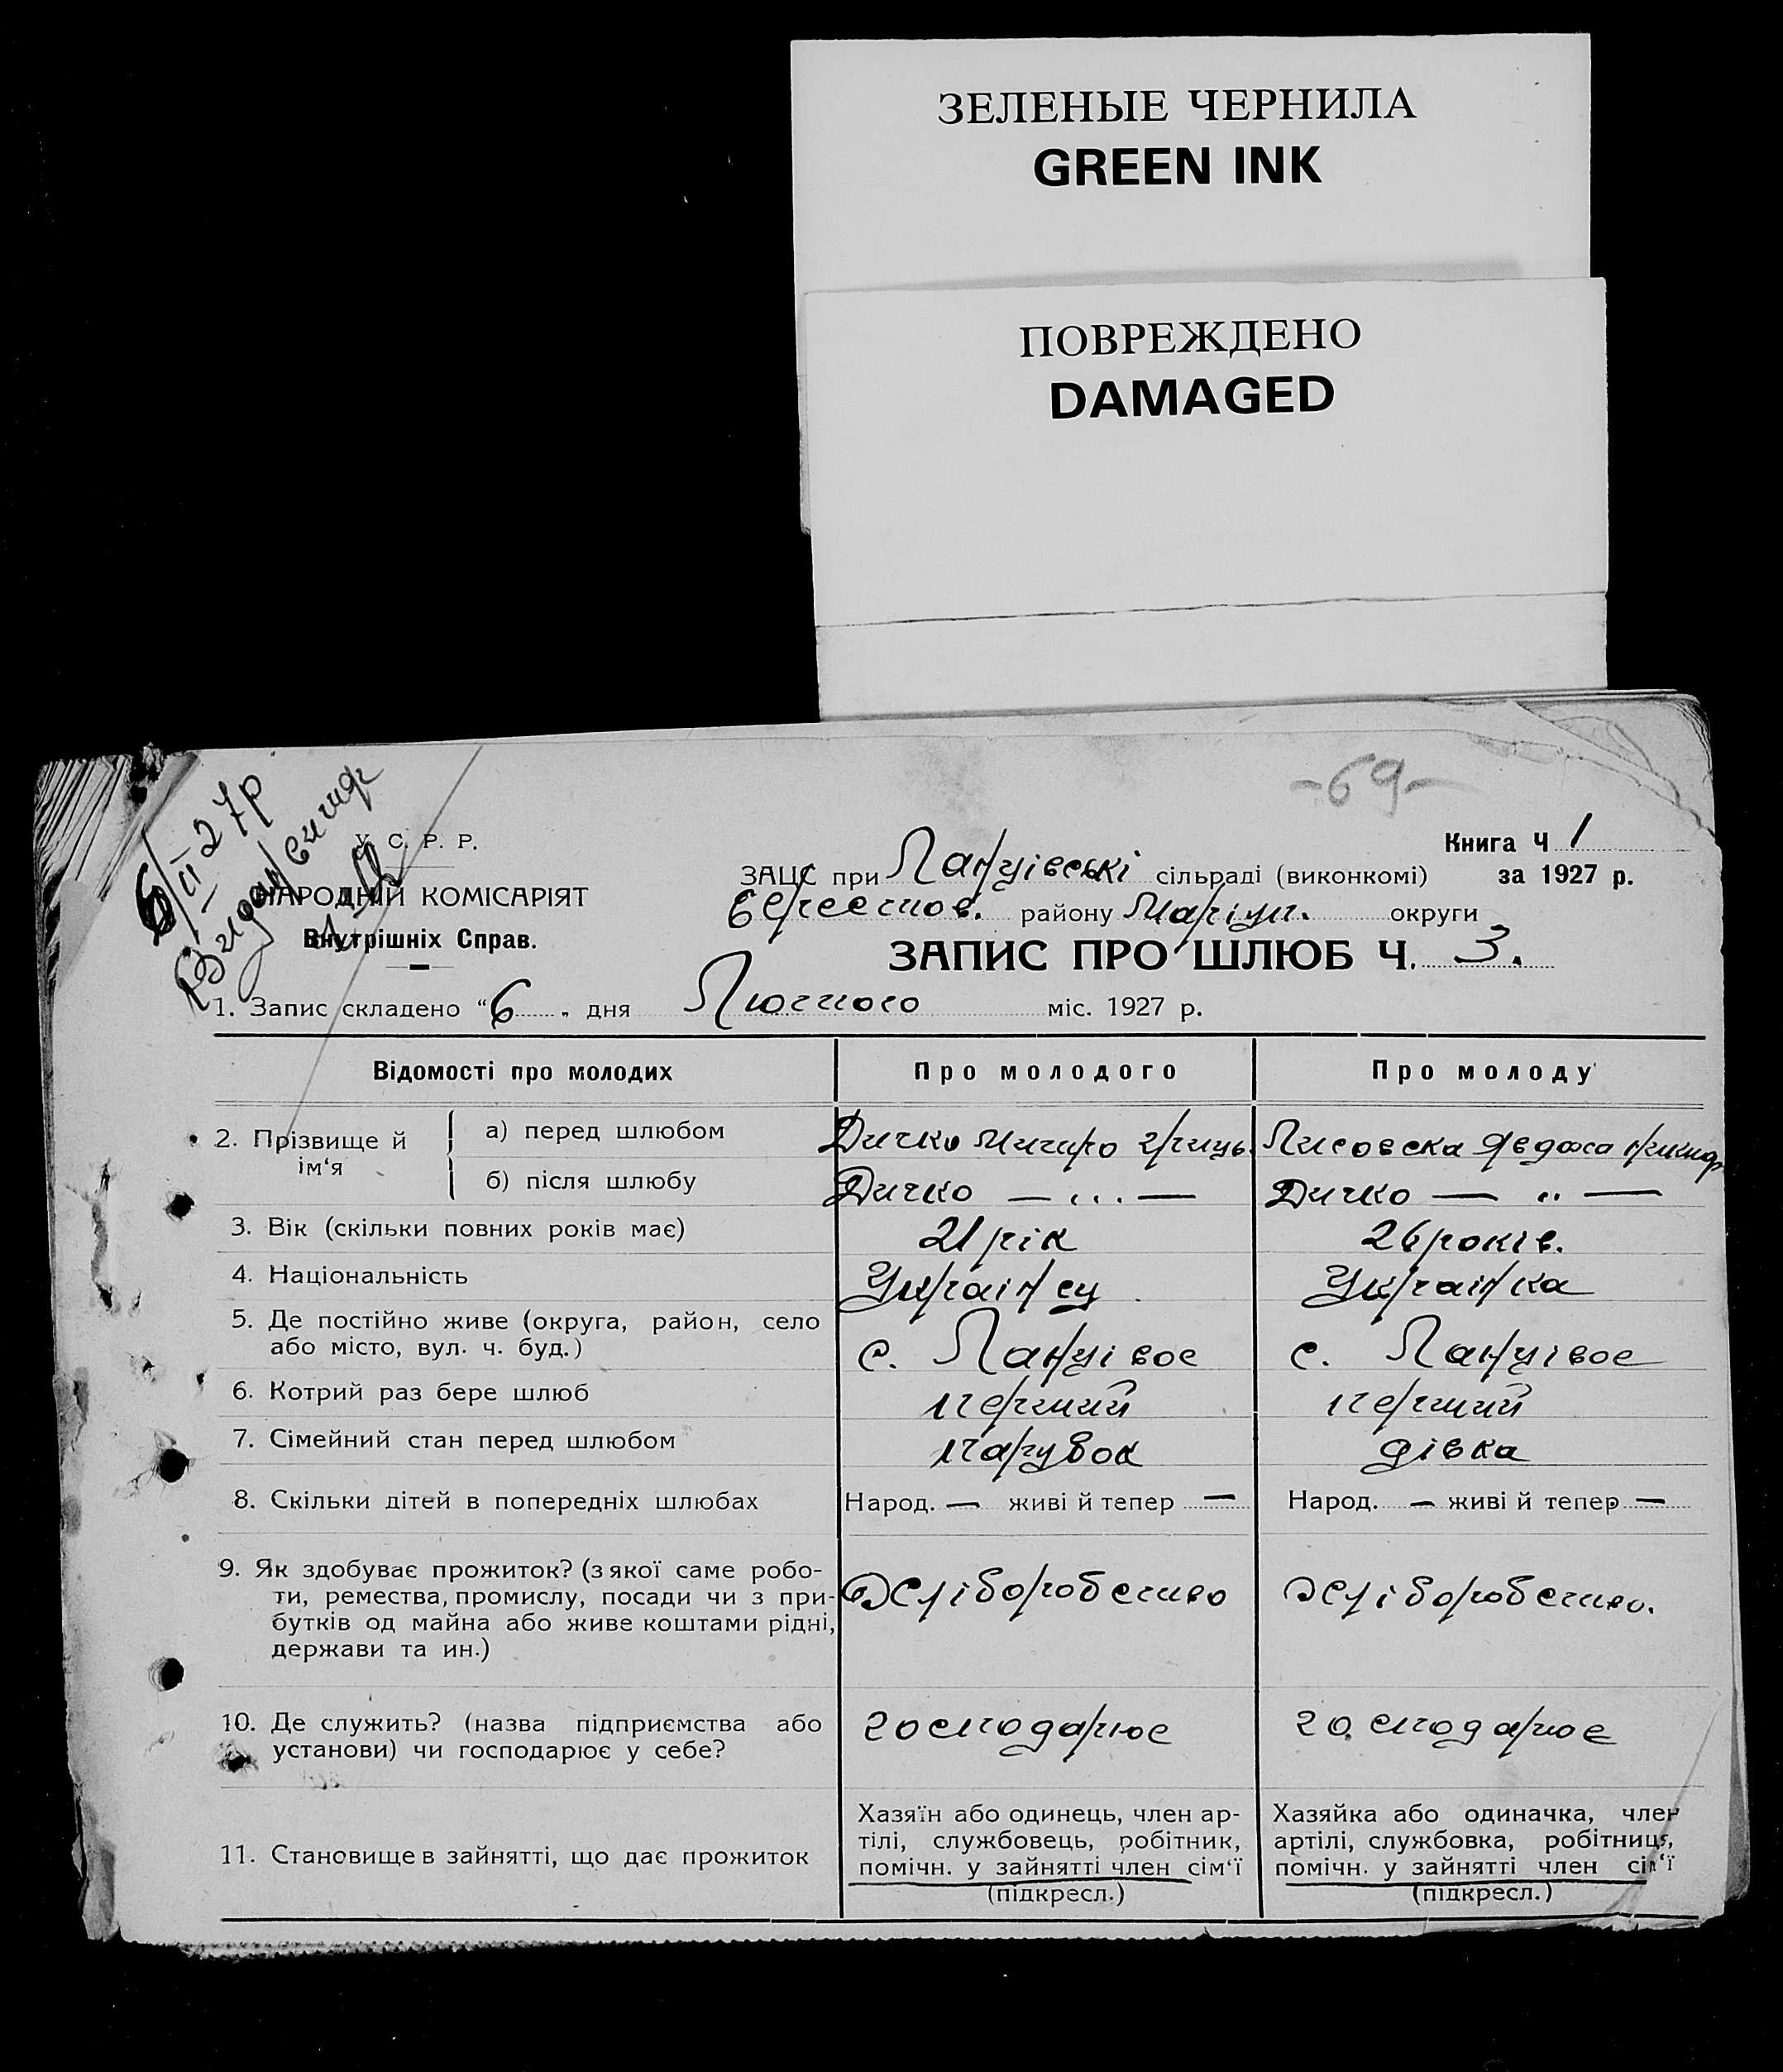 ЗЕЛЕНЫЕ ЧЕРНИЛА
GREEN INK
ПОВРЕЖДЕНО
DAMAGED
-69-
6/II 27р
Видан
У. С. Р. Р.
НАРОДНІЙ КОМІСАРІЯТ
Внутрішніх Справ.
Книга Ч 1
ЗАЦС при Лануівські сільраді (виконкомі) за 1927 р.
Берестов. району Маріуп. округи
ЗАПИС ПРО ШЛЮБ Ч. 3.
1. Запис складено “6„ дня Лютого міс. 1927 р.
Відомості про молодих Про молодого Про молоду
2. Прізвище й ім‘я
а) перед шлюбом Дичко Лисовска
б) після шлюбу Дичко — „ — Дичко — „ —
3. Вік (скільки повних років має) 21 рік 26 років.
4. Національність Українец Українка
5. Де постійно живе (округа, район, село
або місто, вул. ч. буд.) с. с.
6. Котрий раз бере шлюб перший перший
7. Сімейний стан перед шлюбом парубок дівка
8. Скільки дітей в попередніх шлюбах Народ. — живі й тепер — Народ. — живі й тепер —
9. Як здобуває прожиток? (з якої саме робо-
ти, ремества, промислу, посади чи з при-
бутків од майна або живе коштами рідні,
держави та ин.)
Хліборобство Хліборобство.
10. Де служить? (назва підприємства або
установи) чи господарює у себе?
господарює господарює
11. Становище в зайнятті, що дає прожиток
Хазяїн або одинець, член ар-
тілі, службовець, робітник,
помічн. у зайнятті член сім‘ї
(підкресл.)
Хазяйка або одиначка, член
артілі, службовка, робітниця,
помічн. у зайнятті член сім‘ї
(підкресл.)